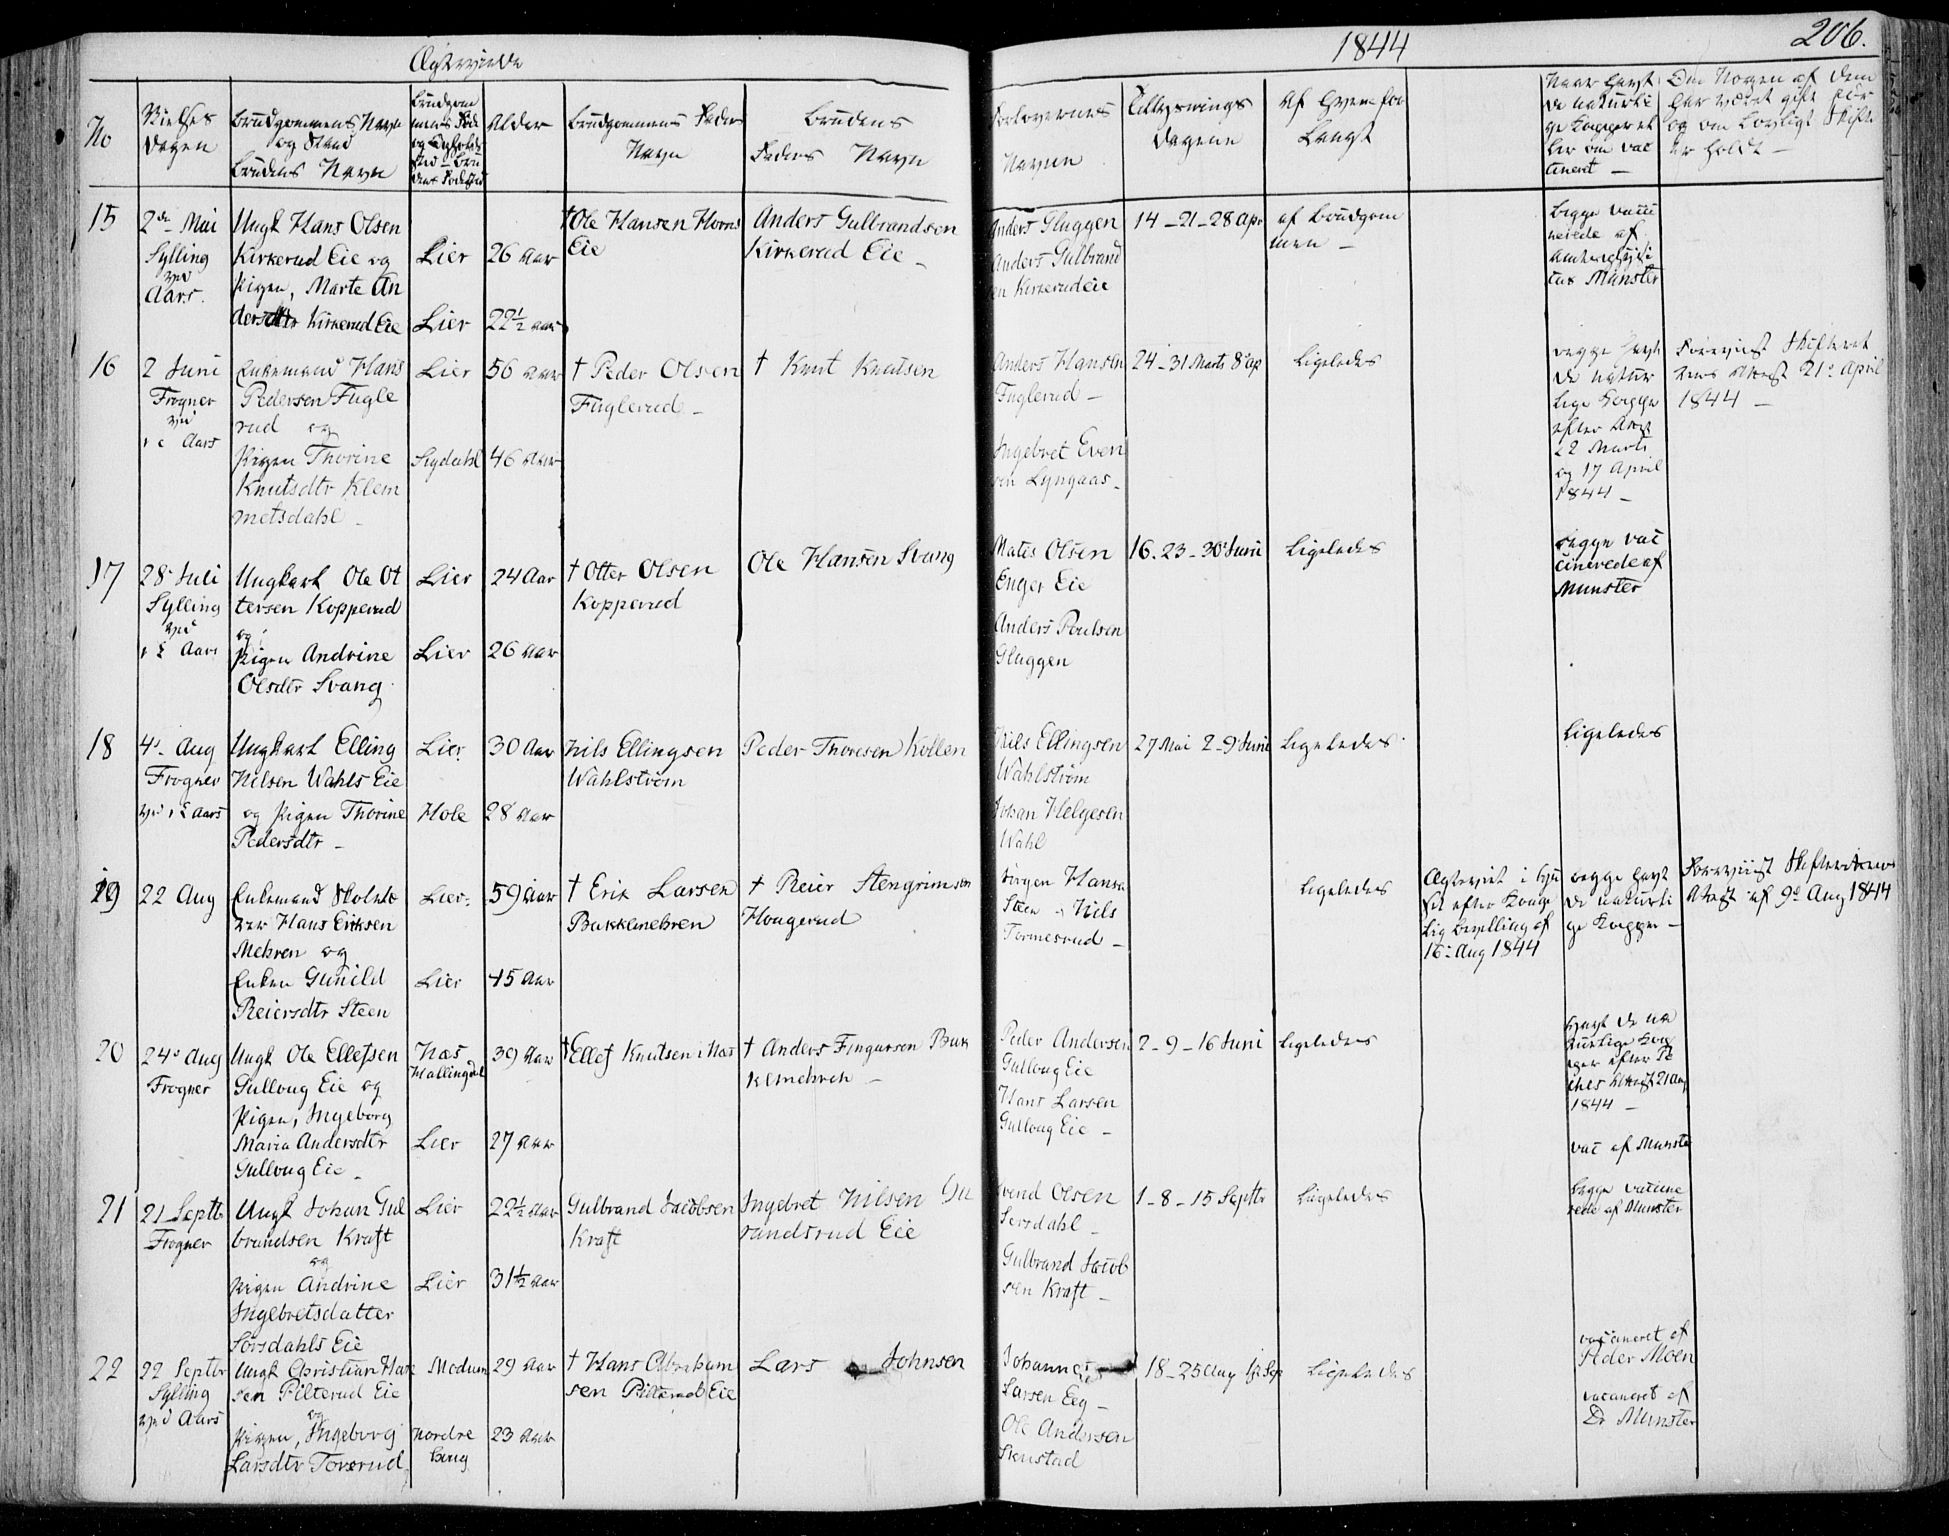 Ægteviede
1844
206.
No
Vielses
Dagen
Brudgommens Navn
og Stand
Brudens Navn
Alder
Brudgommens Faders
Navn
Brudens
Faders Navn
Forlovernes
Navne
Tillysnings
Dagene
Af Hvem for
langt
Naar havt
de naturli
ge Kopper el
ler om vac
cineret —
Om Nogen af dem
har været gift før
og om lovligt Skifte
er holdt —
15
2den Mai
Sylling
ved
Aars.
Ungk Hans Olsen
Kirkerud Eie og
Pigen, Marte An
dersdtr Kirkerud Eie
Lier
Lier
26 Aar
22½ Aar
† Ole Hansen Horns
Eie
Anders Gulbrandsen
Kirkerud Eie —
Anders Gluggen
Anders Gulbrand
sen Kirkerud eie
14 — 21 — 28 Apr
af Brudgom
men —
Begge vacci
nerede af
Munster
16
2 Juni
Frogner
ved
Aars
Enkemand Hans
Pedersen Fugle
rud og
Pigen Thorine
Knutsdtr Klem
metsdahl —
Lier
Sigdahl
56 Aar
46 Aar
† Peder Olsen
Fuglerud —
† Knut Knutsen
Anders Hansen
Fuglerud —
Ingebret Even
sen Lyngaas —
24 — 31 Marts 8 Ap
Ligeledes
begge havt
de natur
lige Kopper
efter Att
22 Marts
og 17 April
1844 —
Foreviist Skifteret
tens Attest 21 April
1844 —
17
28 Juli
Sylling
ved
Aars
Ungkarl Ole Ot
tersen Kopperud
og
Pigen Andrine
Olsdtr Svang
Lier
Lier
24 Aar
26 Aar
† Otter Olsen
Kopperud
Ole Hansen Svang
Mates Olsen
Enger Eie
Anders Poulsen
Gluggen
16. 23 — 30 Juni
Ligeledes
begge vac
cinerede af
Munster
18
4 Aug
Frogner
ved Aars
Ungkarl Elling
Nilsen Wahls Eie
og Pigen Thorine
Pedersdtr —
Lier
Hole
30 Aar
28 Aar
Nils Ellingsen
Wahlstrøm
Peder Thoresen Kollen
Nils Ellingsen
Wahlstrøm
Johan Helgesen
Wahl
27 Mai 2 — 9 Juni
Ligeledes
Ligeledes
19
22 Aug
Enkemand Skolelæ
rer Hans Eriksen
Mehren og
Enken Gunild
Reiersdtr Steen
Lier
Lier
59 Aar
45 Aar
† Erik Larsen
Bukkemehren
† Reier Stengrimsen
Hougerud
Jørgen Hansen
Steen Nils
Tormesrud —
Ligeledes
Ægteviet i Hu
set efter Konge
lig Bevilling af
16 Aug 1844
begge havt
de naturli
ge Kopper —
Foreviist Skifterettens
Attest af 9 Aug 1844
20
24 Aug
Frogner
Ungk Ole Ellefsen
Gulloug Eie og
Pigen, Ingeborg
Maria Andersdtr
Gulloug Eie —
Næs
Hallingdal
Lier
39 Aar
27 Aar
† Ellef Knutsen i Næs
† Anders Fingarsen Buk
kemehren —
Peder Andersen
Gulloug Eie
Hans Larsen
Gulloug Eie —
2 — 9 — 16 Juni
Ligeledes
havt de na
turlige Kop
per efter
Attest 21 Aug
1844 —
vac af Munster
21
21 Septbr
Frogner
Ungk Johan Gul
brandsen Kraft
og
Pigen Andrine
Ingebretsdatter
Sørsdahls Eie
Lier
Lier
22½ Aar
31½ Aar
Gulbrand Jacobsen
Kraft
Ingebret Nilsen
randsrud Eie
Svend Olsen
Sørsdahl —
Gulbrand Jacob
sen Kraft —
1 — 8 — 15 Septbr
Ligeledes
begge vaccine
rede af Munster
22
22 Septbr
Sylling
ved Aars
Ungk Christian Han
sen Pilterud Eie
og
Pigen, Ingeborg
Larsdtr Toverud
Modum
Nordre
houg
29 Aar
23 Aar
† Hans Abraham
sen Pilterud Eie
Lars Johnsen
Johannes
Larsen Eeg —
Ole Andersen
Stenstad
18 — 25 Aug 1 Sep
Ligeledes
vaccineret af
Peder Moen
vaccineret af
Dr Munster